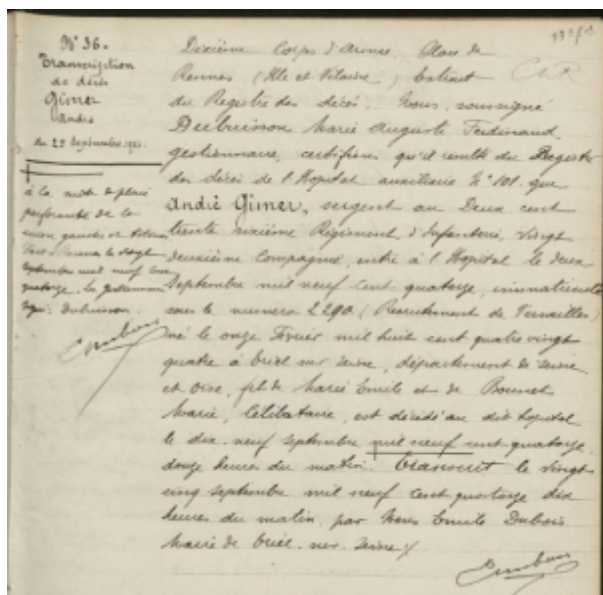 N° 36.
Transcription
de décès
Gimer
André
du 25 Septembre
à la suite de plaie
perforante de la
cuisse gauche et tétanos
Fait à Rennes le vingt
septembre mil neuf cent
quatorze. Le gestionnaire
signé: Dubuisson.
Dixième Corps d'Armée. Place de
Rennes (Ille et Vilaine) Extrait
du Registre des décès. Nous, soussigné
Dubuisson Marie Auguste Ferdinand,
gestionnaire, certifions qu'il résulte du Registre
des décès de l'Hopital auxiliaire N° 101, que
André Gimer, sergent au Deux cent
trente sixième Régiment d'Infanterie, vingt
deuxième Compagnie, entré à l'Hopital le deux
Septembre mil neuf cent quatorze, immatriculé
sous le numéro 2290 (Recrutement de Versailles)
né le onze Février mil huit cent quatre vingt
quatre à Triel sur Seine, département de Seine
et Oise, fils de Marie Emile et de Bonnet
Marie, célibataire, est décédé au dit hopital
le dix-neuf septembre mil neuf cent quatorze
douze heures du matin. Transcrit le vingt
cinq septembre mil neuf cent quatorze dix
heures du matin, par Nous Emile Dubois
Maire de Triel-sur-Seine